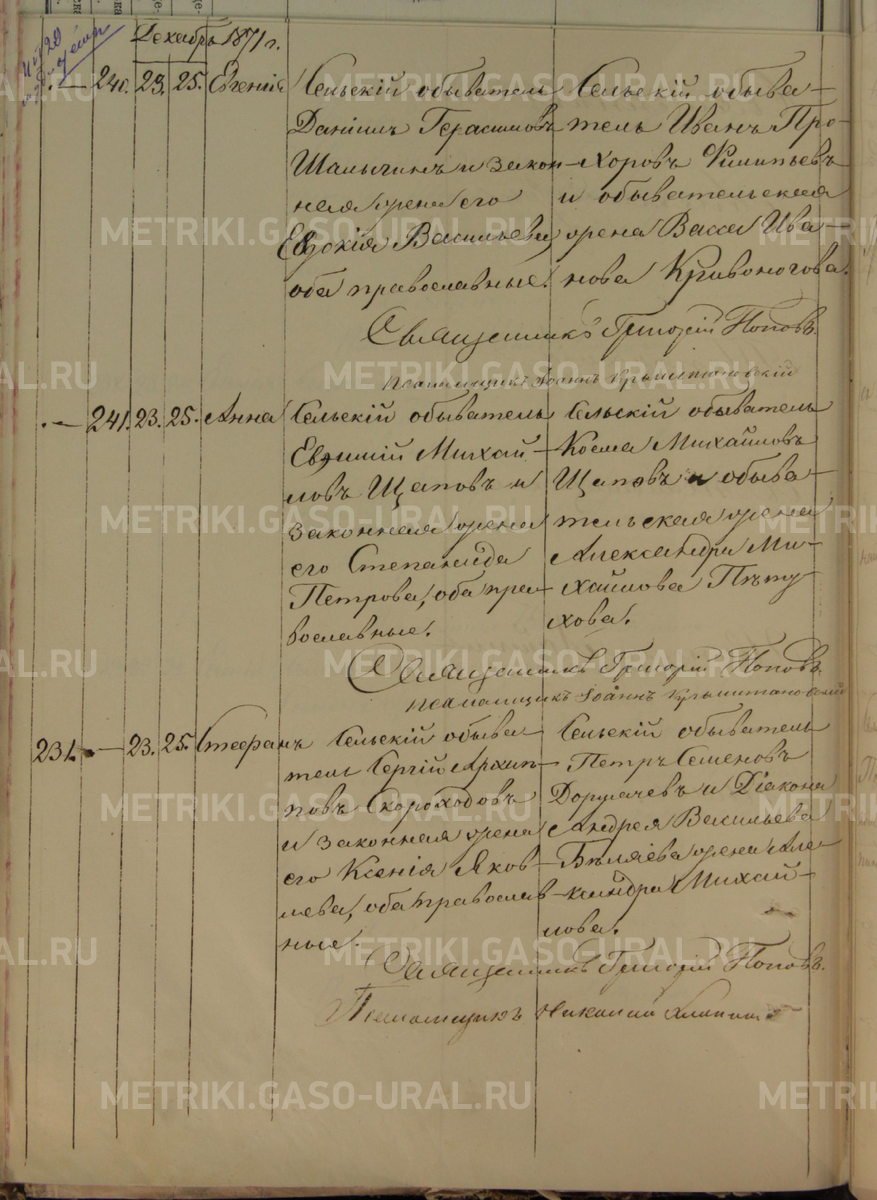 Декабрь 1871 г.
— 240. 23. 25. Евгенія
Сельскій обыватель
Даніилъ Герасимовъ
Шалыгинъ и закон-
ная жена его
Евдокія Васильева,
оба православные.
Сельскій обыва-
тель Иванъ Про-
хоровъ Филипьевъ
и обывательская
жена Васса Ива-
нова Кривоногова.
Священникъ Григорій Поповъ.
Псаломщикъ Іоаннъ
— 241. 23. 25. Анна
Сельскій обыватель
Евфимій Михай-
ловъ Щаповъ и
законная жена
его Степанида
Петрова, оба пра-
вославные.
Сельскій обыватель
Косма Михайловъ
Щаповъ и обыва-
тельская жена
Александра Ми-
хайлова Пѣту-
хова.
Священникъ Григорій Поповъ.
Псаломщикъ Іоаннъ
231. — 23. 25. Стефанъ
Сельскій обыва-
тель Сергій Архип-
повъ Скороходовъ
и законная жена
его Ксенія Яков-
лева, оба православ-
ные.
Сельскій обыватель
Петръ Семеновъ
и Діакона
Андрея Васильева
Бѣляева жена Але-
ксандра Михай-
лова.
Священникъ Григорій Поповъ.
Псаломщикъ
METRIKI.GASO-URAL.RU